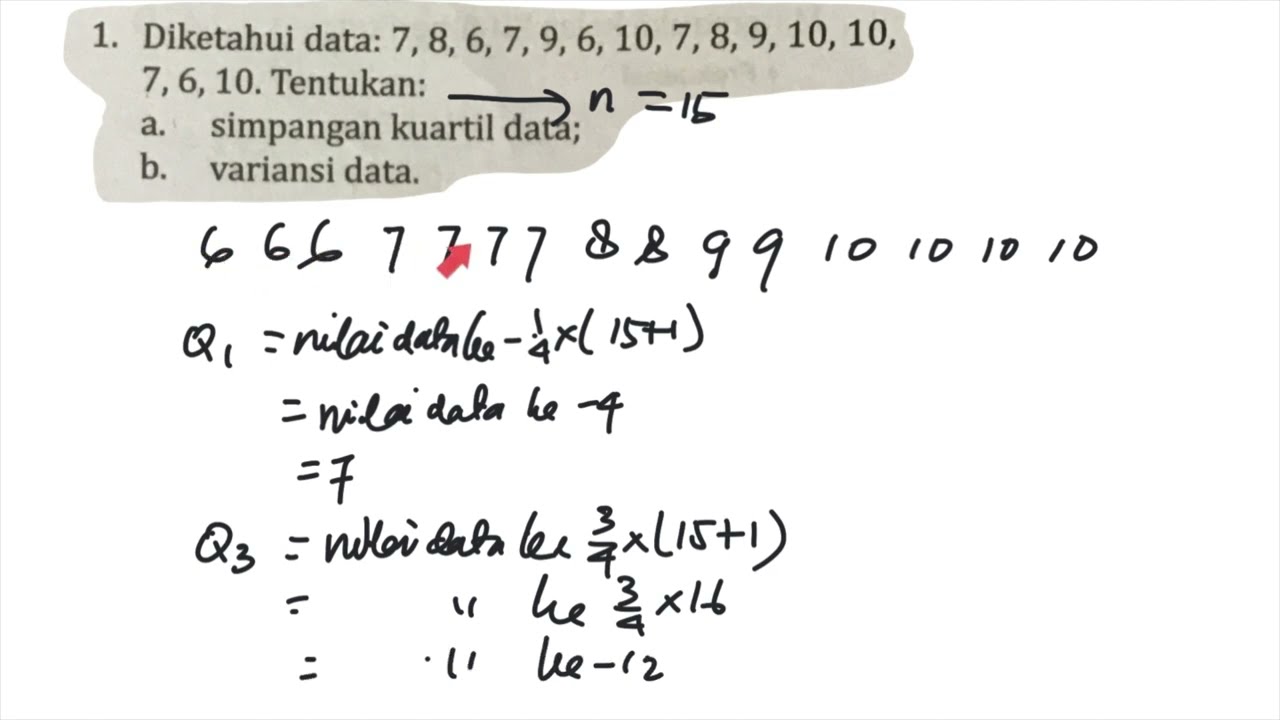 1. Diketahui data: 7, 8, 6, 7, 9, 6, 10, 7, 8, 9, 10, 10,
7, 6, 10. Tentukan:
n = 15
a. simpangan kuartil data;
b. variansi data.
6 6 6 7 7 7 7 8 8 9 9 10 10 10 10
Q1 = nilai data ke - 1/4 x (15+1)
= nilai data ke - 4
= 7
Q3 = nilai data ke 3/4 x (15+1)
= " ke 3/4 x 16
= " ke - 12